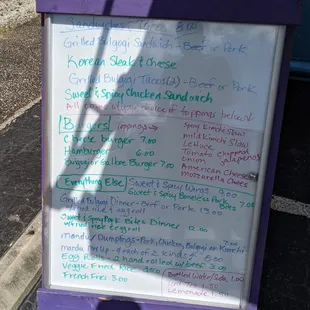 Sandwiches 8.00
Grilled Bulgogi Sandwich - Beef or Pork
Korean Steak & Cheese
Grilled Bulgogi Tacos (2) - Beef or Pork
Sweet & Spicy Chicken Sandwich
All come your choice of toppings below
Burgers toppings
Cheese burger 7.00
Hamburger 6.00
Bulgogi or Galbee Burger 7.00
Spicy Kimchi Slaw
Mild Kimchi Slaw
Lettuce
Tomato
onion jalapenos
American Cheese
Mozzarella Cheese
Everything Else
Sweet & Spicy Wings 9.00
Sweet & Spicy Boneless Pork Bites 7.00
Grilled Bulgogi Dinner - Beef or Pork 13.00
w/fried rice & egg roll
Sweet & Spicy Pork Bites Dinner
w/fried rice & egg roll
Mandu/Dumplings - Pork, Chicken, Bulgogi or Kimchi 7.00
Mandu - each of 2 kinds 8.00
Egg Rolls - 2 hand rolled w/beef 3.00
Veggie Fried Rice
French Fries 3.00
Bottled Water/Soda 1.00